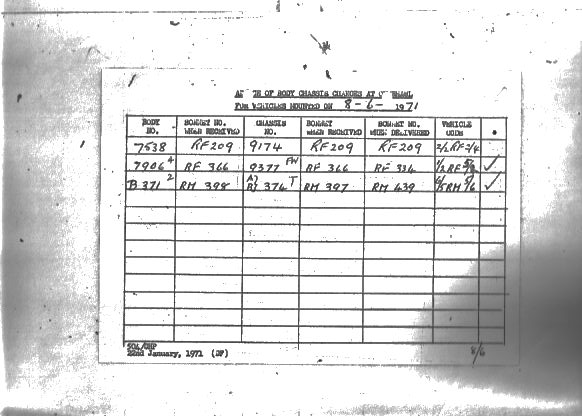 OF BODY CHASSIS CHANGES AT
FOR VEHICLES MOUNTED ON 8-6- 1971
BODY NO. BONNET NO. WHEN RECEIVED CHASSIS NO. BONNET WHEN RECEIVED BONNET NO. WHEN DELIVERED VEHICLE CODE
7538 RF 209 9174 RF 209 RF 209 2/2RF2/4
7906 4 RF 366 9377 FW RF 366 RF 334 ✓
B 371 2 RM 398 374 T RM 397 RM 439 ✓
22nd January, 1971
8/6